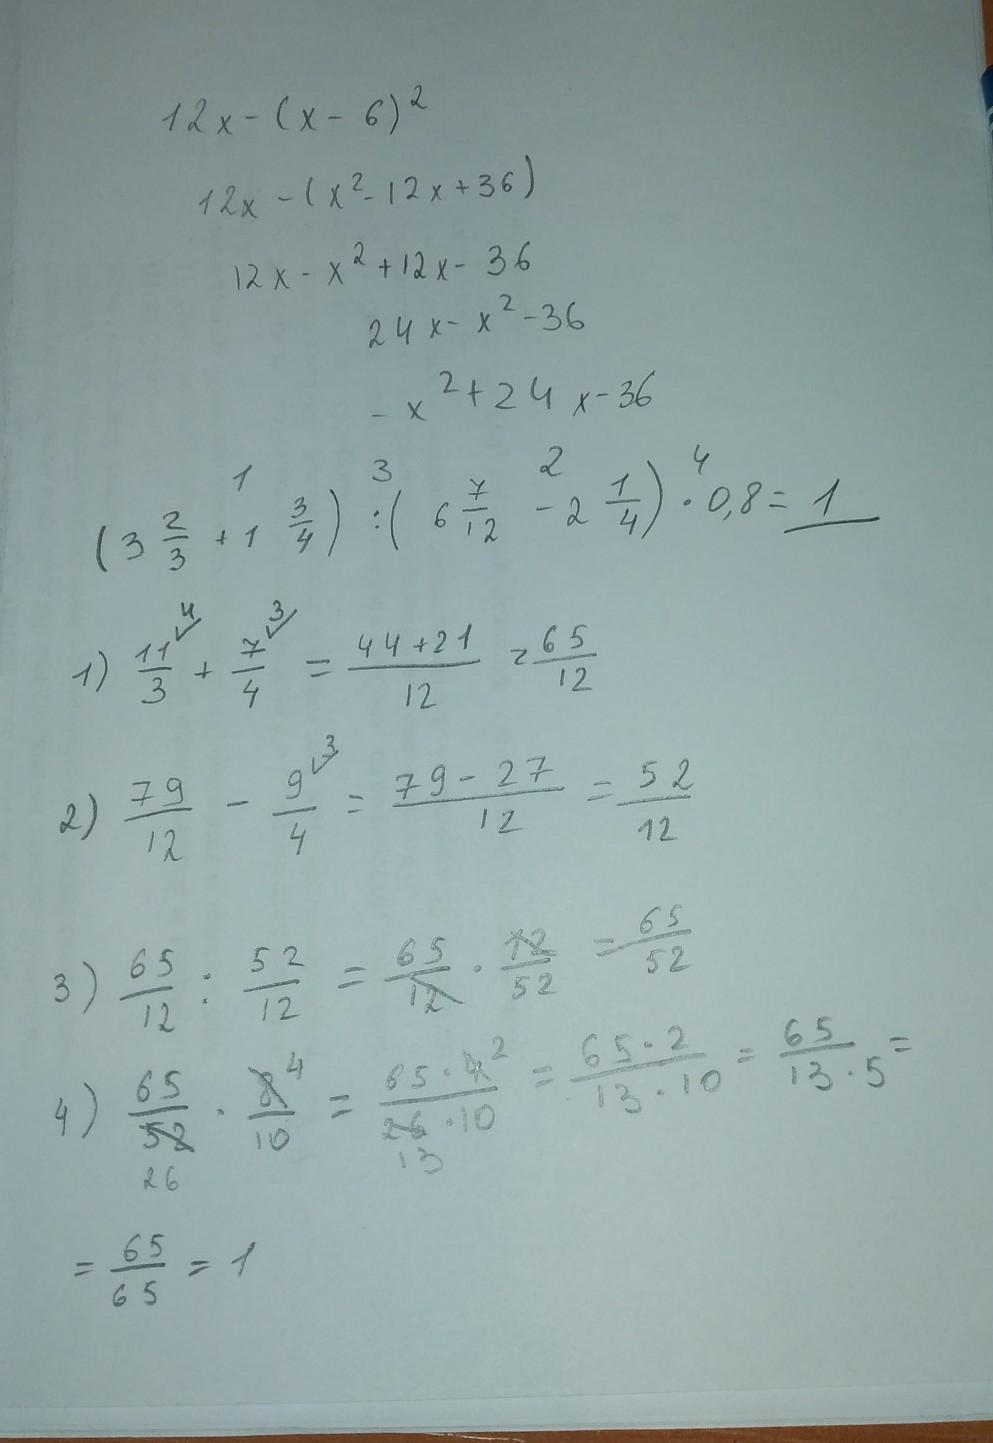 12x-(x-6)²
12x-(x²-12x+36)
12x-x²+12x-36
24x-x²-36
-x²+24x-36
1 3 2 4
(3 2/3 + 1 3/4) : (6 7/12 - 2 1/4) · 0,8 = 1
1) 11/3 ⁴ + 7/4 ³ = (44+21)/12 = 65/12
2) 79/12 - 9/4 ³ = (79-27)/12 = 52/12
3) 65/12 : 52/12 = 65/12 · 12/52 = 65/52
4) 65/52 · 8/10 ⁴ = (65·4)/(26·10) ² = (65·2)/(13·10) = 65/(13·5) =
26 13
= 65/65 = 1